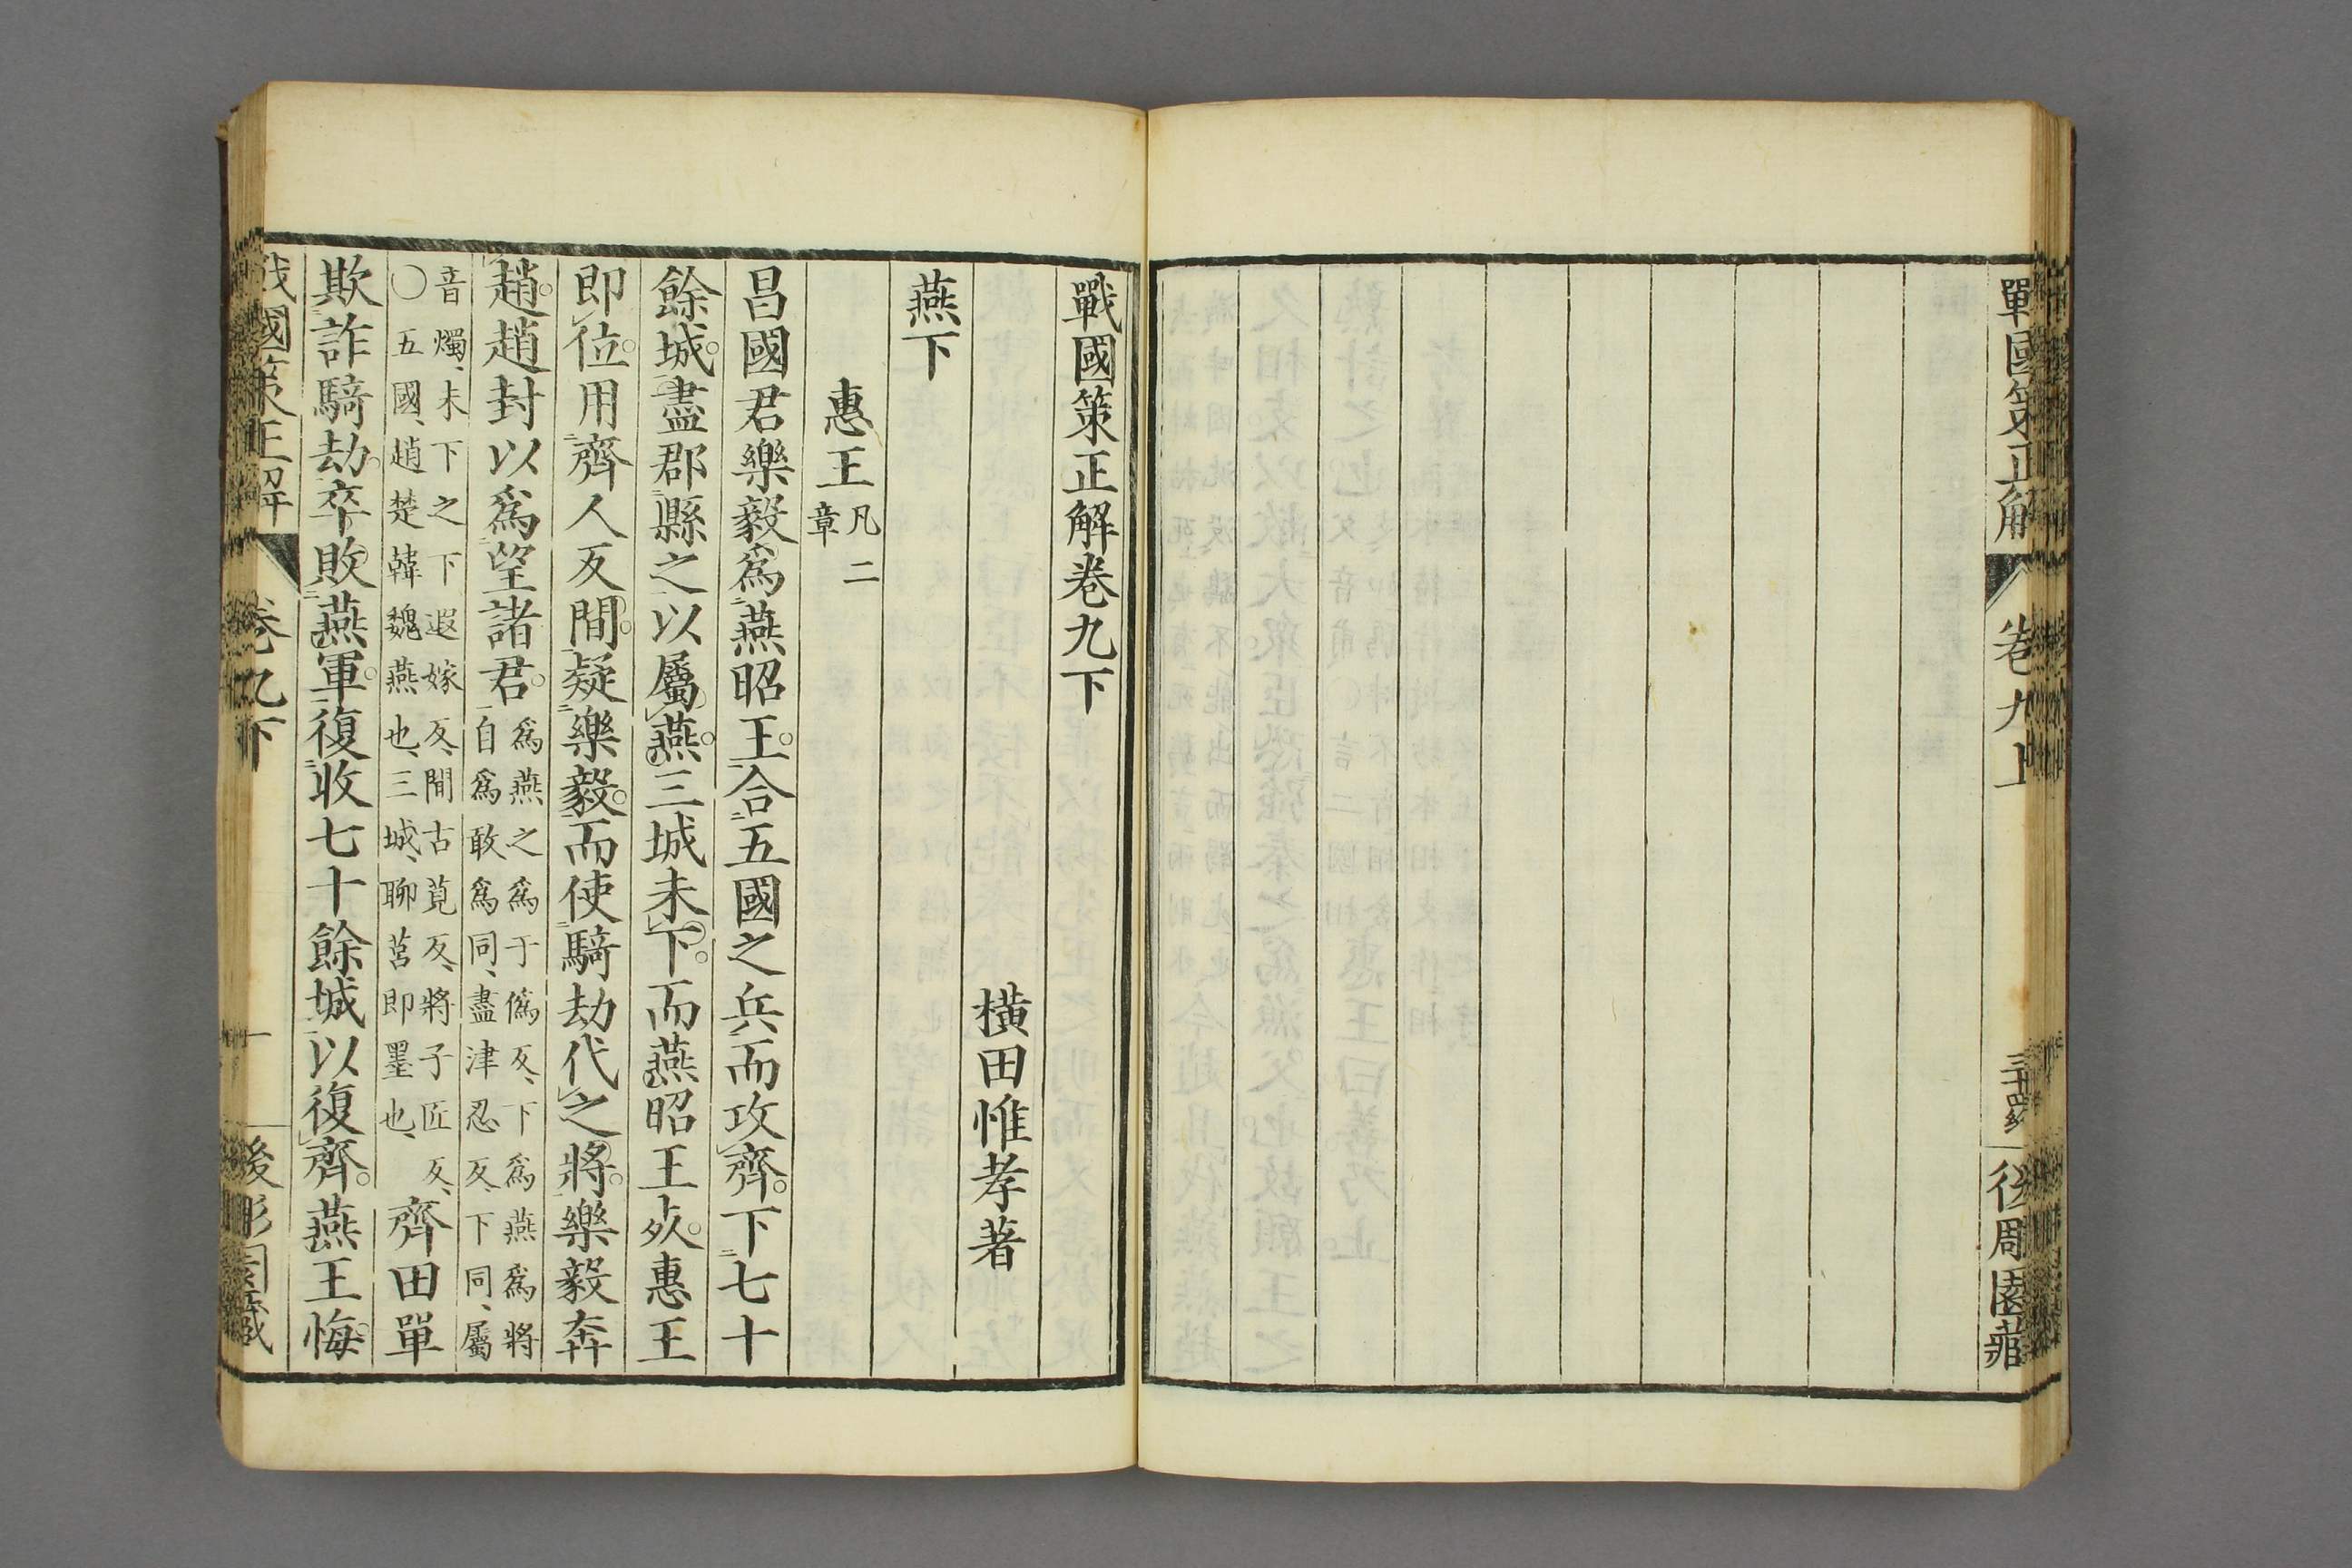 戰國策正解 卷九上 三十四終 後凋園藏
戰國策正解卷九下
橫田惟孝著
燕下
惠王凡二章
昌國君樂毅爲燕昭王合五國之兵而攻齊下七十
餘城盡郡縣之以屬燕三城未下而燕昭王死惠王
即位用齊人反間疑樂毅而使騎劫代之將樂毅奔
趙趙封以爲望諸君爲燕之爲于僞反、下爲燕爲將
自爲敢爲同、盡津忍反、下同、屬
音燭、未下之下遐嫁反、間古莧反、將子匠反、
〇五國、趙楚韓魏燕也、三城、聊莒即墨也、齊田單
欺詐騎劫卒敗燕軍復收七十餘城以復齊燕王悔
戰國策正解 卷九下 一 後彫園藏